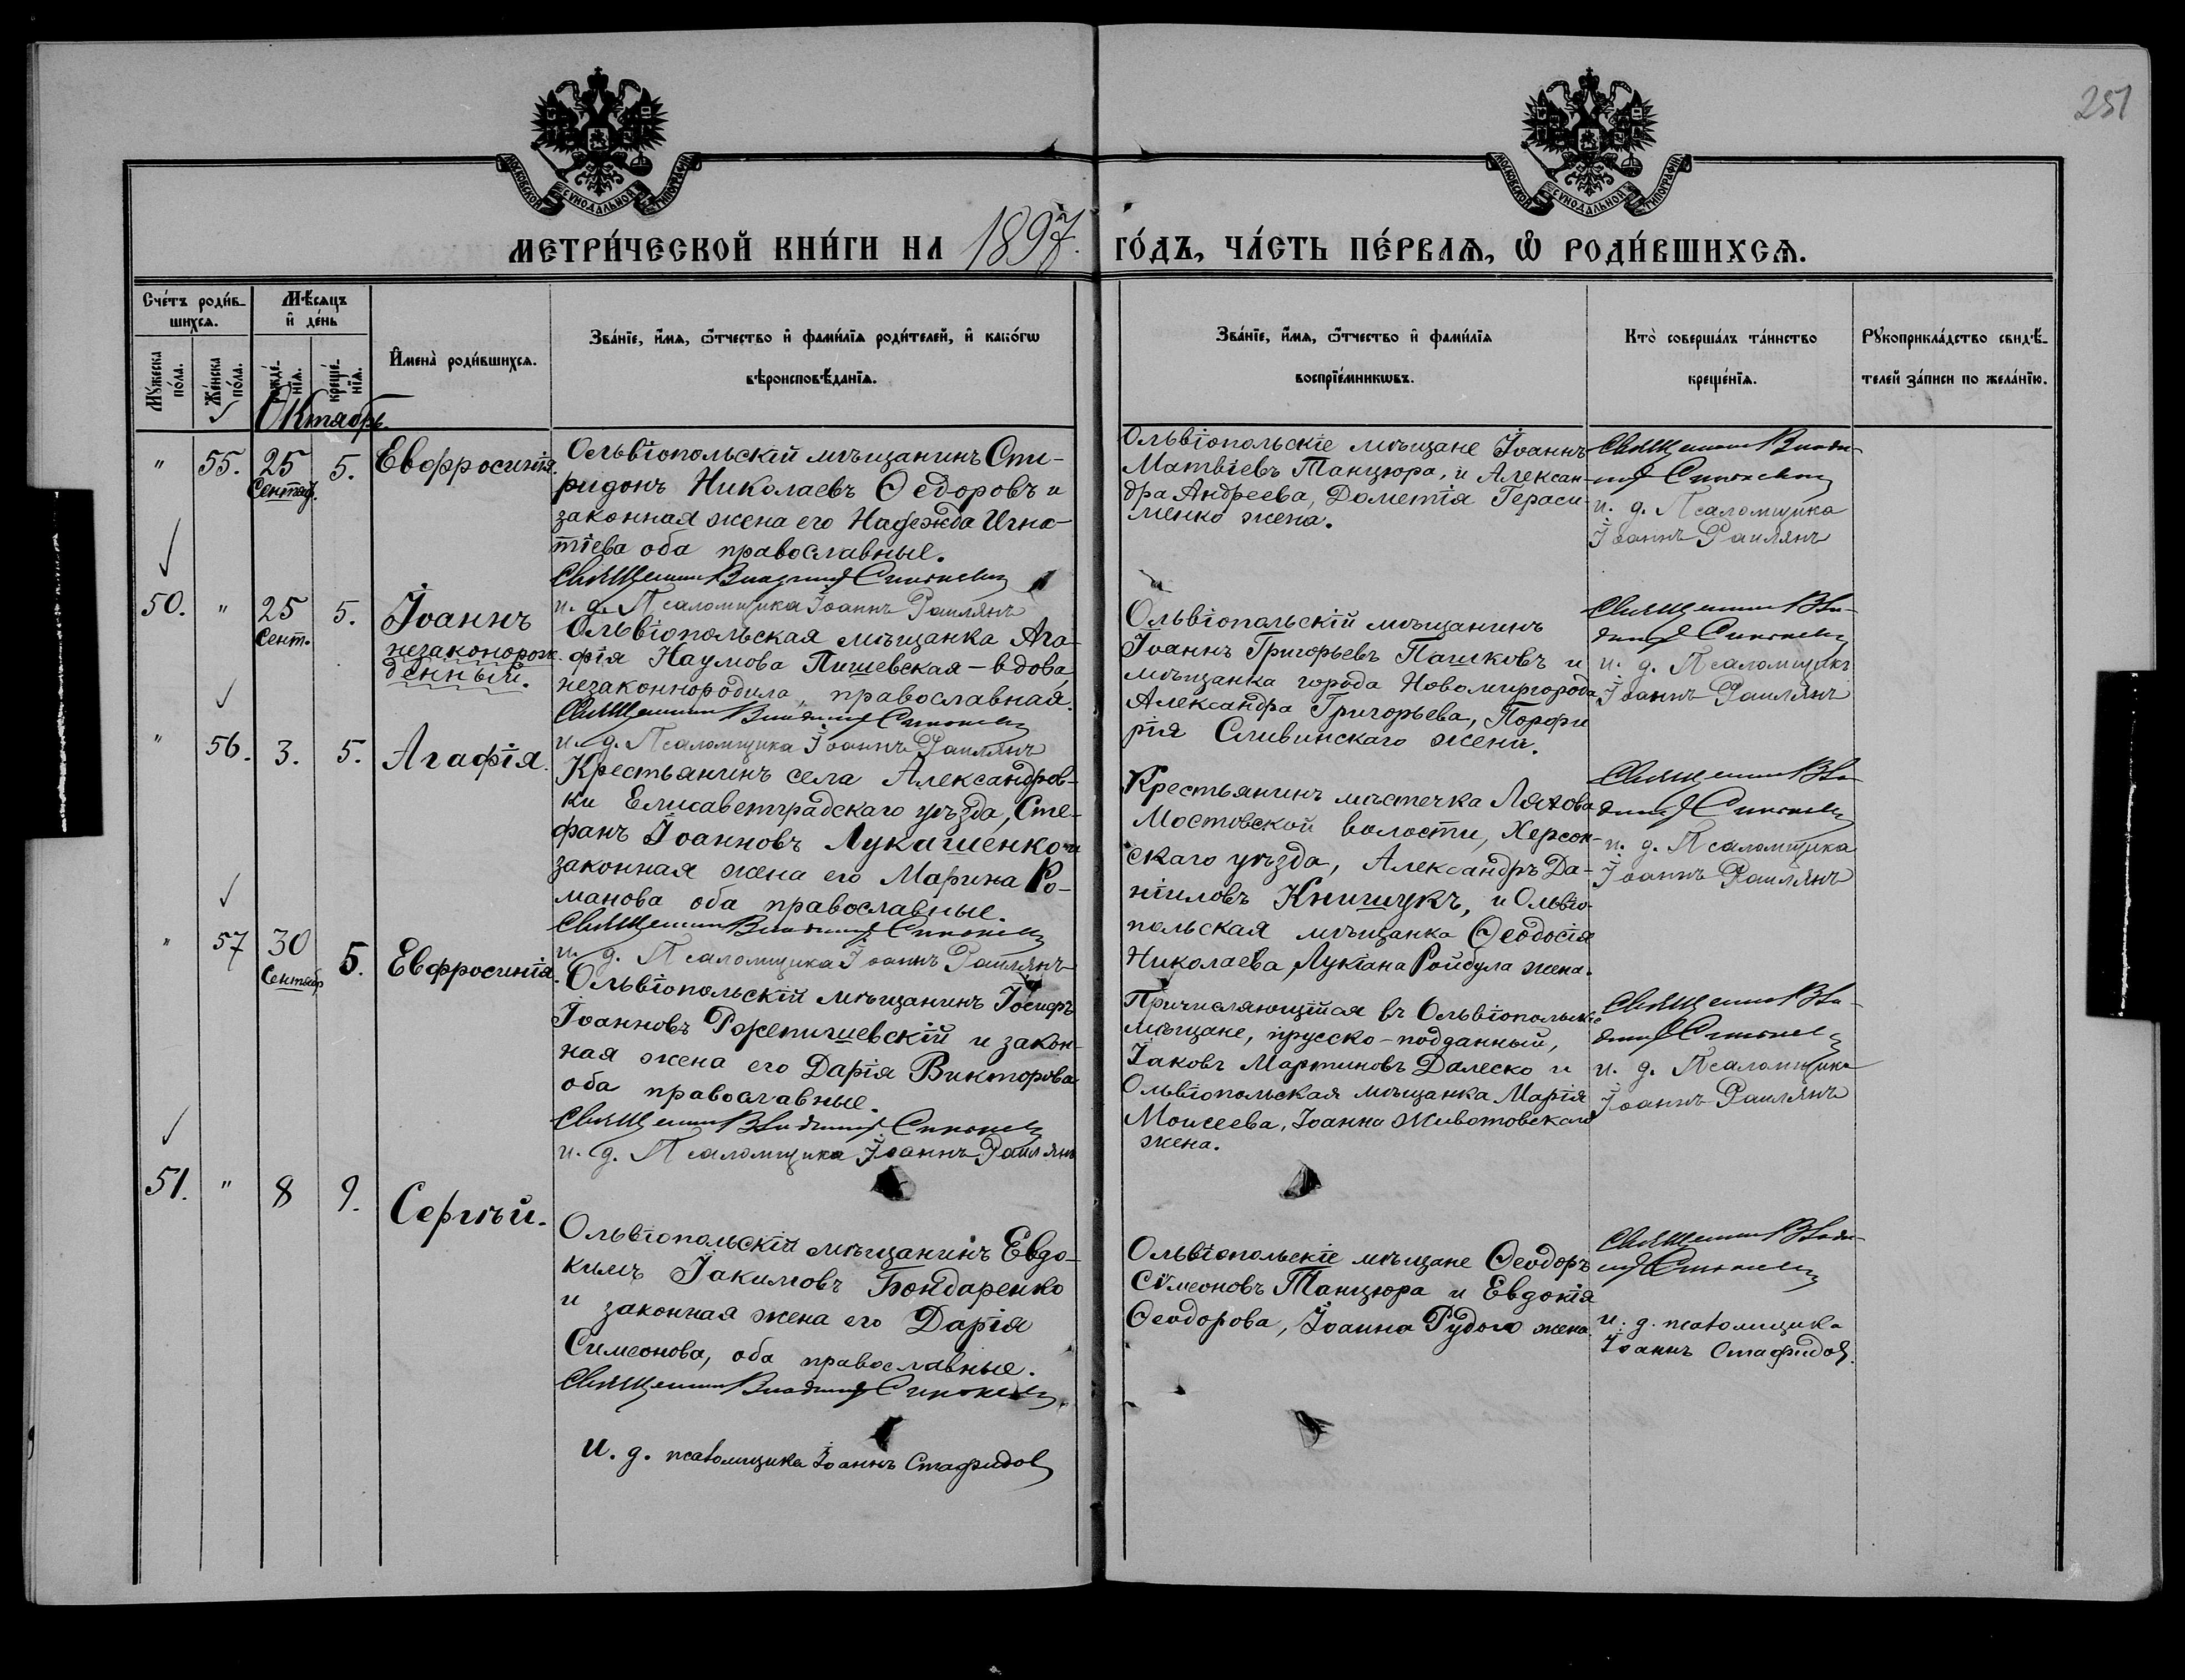 251
МОСКОВСКОЙ СѴНОДАЛЬНОЙ ТИПОГРАФІИ
МОСКОВСКОЙ СѴНОДАЛЬНОЙ ТИПОГРАФІИ
МЕТРИ́ЧЕСКОЙ КНИ́ГИ НА 1897. ГО́ДЪ, ЧА́СТЬ ПЕ́РВАѦ, Ѽ РОДИ́ВШИХСѦ.
Сче́тъ роди́в-
шихсѧ.
Мꙋ́жеска по́ла.
Же́нска по́ла.
Мѣ́сѧцъ
и де́нь
рожде́-нїѧ.
креще́-нїѧ.
Имена̀ роди́вшихсѧ.
Зва́нїе, и́мѧ, ѻ́тчество и фами́лїѧ роди́телей, и како́гѡ
вѣроисповѣ́данїѧ.
Зва́нїе, и́мѧ, ѻ́тчество и фами́лїѧ
воспрїе́мникѡвъ.
Кто̀ соверша́лъ та́инство
креще́нїѧ.
Рꙋкоприкла́дство свидѣ́-
телей за́писи по жела́нїю.
Октябрь
" 55. 25 Сентяб. 5. Евфросинія.
Ольвіопольскій мѣщанинъ Спи-
ридонъ Николаевъ Ѳедоровъ и
законная жена его Надежда Игна-
тіева оба православные.
Священник Владимир
и. д. Псаломщика Іоаннъ Раилянъ
Ольвіопольскіе мѣщане Іоаннъ
Матвіевъ Танцюра, и Алексан-
дра Андреева, Дометія Гераси-
менко жена.
Священник Влади-
мир
и. д. Псаломщика
Іоаннъ Раилянъ
50. " 25 Сент. 5. Іоаннъ
незаконорож-
денный.
Ольвіопольская мѣщанка Ага-
фія Наумова Пишевская - вдова
незаконнородила, православная.
Священник Владимир
и. д. Псаломщика Іоаннъ Раилянъ
Ольвіопольскій мѣщанинъ
Іоаннъ Григорьевъ Пашковъ и
мѣщанка города Новомиргорода
Александра Григорьева, Порфи
рія Сливинскаго жена.
Священник Вла-
димир
и. д. Псаломщика
Іоаннъ Раилянъ
" 56. 3. 5. Агафія.
Крестьянинъ села Александров-
ки Елисаветградскаго уѣзда, Сте-
фанъ Іоанновъ Лукашенко и
законная жена его Марина Ро-
манова оба православные.
Священник Владимир
и. д. Псаломщика Іоаннъ Раилянъ
Крестьянинъ мѣстечка Ляхова
Мостовской волости, Херсон-
скаго уѣзда, Александръ Да-
ніиловъ Книшукъ, и Ольвіо-
польская мѣщанка Ѳеодосія
Николаева, Лукіана Ройбула жена.
Священник Вла-
димир
и. д. Псаломщика
Іоаннъ Раилянъ
" 57 30 Сентябр 5. Евфросинія.
Ольвіопольскій мѣщанинъ Іосифъ
Іоанновъ Ржепишевскій и закон-
ная жена его Дарія Викторова
оба православные.
Священник Владимир
и. д. Псаломщика Іоаннъ Раилянъ
Причисляющійся въ Ольвіопольскіе
мѣщане, прусско-подданный,
Іаковъ Мартиновъ Далеско и
Ольвіопольская мѣщанка Марія
Моисеева, Іоанна Животовскаго
жена.
Священник Вла-
димир
и. д. Псаломщика
Іоаннъ Раилянъ
51. " 8 9. Сергѣй.
Ольвіопольскій мѣщанинъ Евдо-
кимъ Іакимовъ Бондаренко
и законная жена его Дарія
Симеонова, оба православные.
Священник Владимир
И. д. псаломщика Іоаннъ Стафидов
Ольвіопольскіе мѣщане Ѳеодоръ
Сѷмеоновъ Танцюра и Евдокія
Ѳеодорова, Іоанна Рудого жена.
Священник Влади-
мир
и. д. псаломщика
Іоаннъ Стафидов.